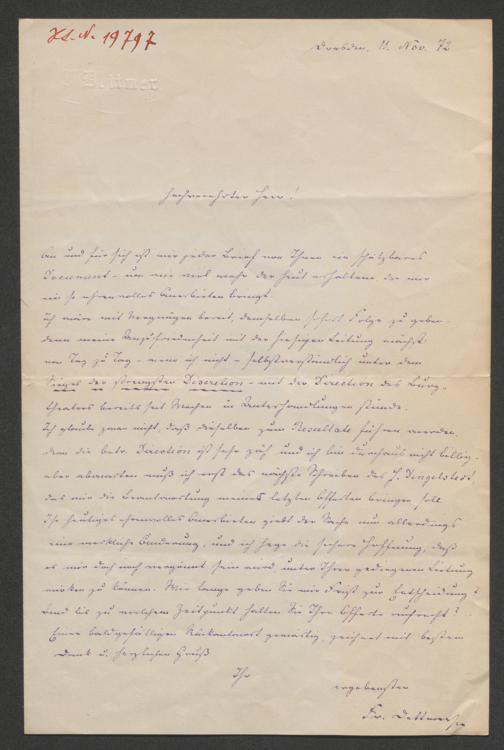 H.I.N. 19797
Dresden, 11. Nov. 72
Dettmer
Hochverehrter Herr!
An und für sich ist mir jeder Brief von Ihnen ein schätzbares
Document – um wie viel mehr der heut erhaltene, der mir
ein so ehrenvolles Anerbieten bringt.
Ich wäre mit Vergnügen bereit, demselben sofort Folge zu geben
denn meine Unzufriedenheit mit der hiesigen Leitung wächst
von Tag zu Tag – wenn ich nicht – selbstverständlich unter dem
Siegel der strengsten Discretion – mit der Direction des Burg-
theaters bereits seit Wochen in Unterhandlungen stünde.
Ich glaube zwar nicht, daß dieselben zum Resultate führen werden,
denn die betr. Direction ist sehr zäh und ich bin durchaus nicht billig,
aber abwarten muß ich erst das nächste Schreiben des H. Dingelstedt,
das mir die Beantwortung meines letzten Offerten bringen soll.
Ihr heutiges ehrenvolles Anerbieten giebt der Sache nun allerdings
eine merkliche Änderung, und ich hege die sichere Hoffnung, daß
es mir doch noch vergönnt sein wird, unter Ihrer gediegenen Leitung
wirken zu können. Wie lange geben Sie mir Frist zur Entscheidung?
und bis zu welchem Zeitpunkt halten Sie Ihre Offerte aufrecht?
Einer baldgefälligen Rückantwort gewärtig, zeichnet mit bestem
Dank u. herzlichem Gruß
Ihr
ergebenster
Fr. Dettmer